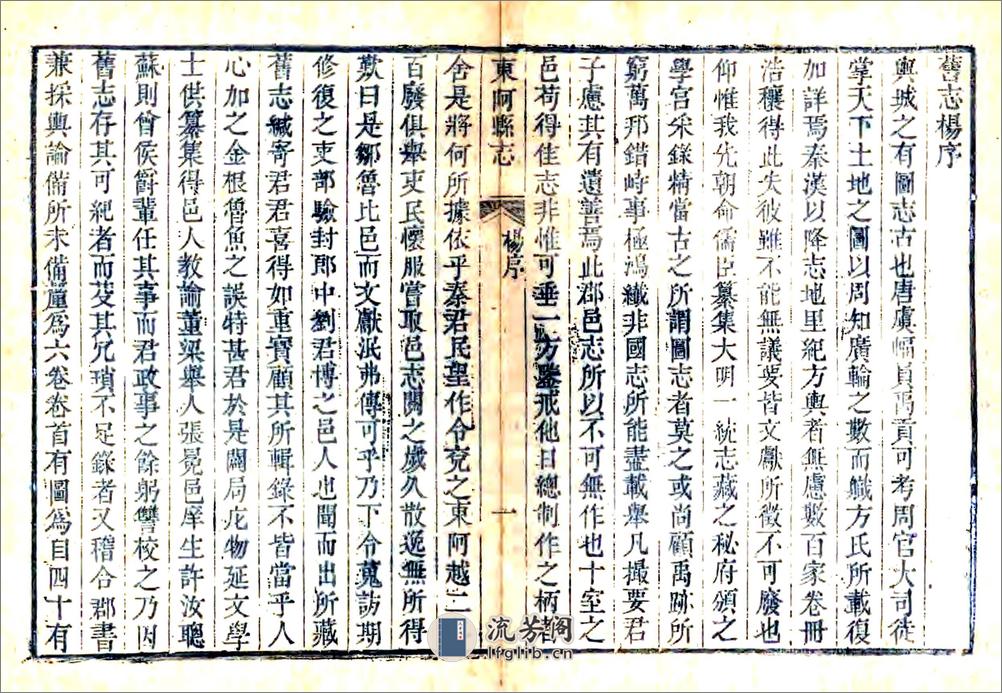 舊志楊序
輿城之有圖志古也唐虞幅員禹貢可考周官大司徒
掌天下土地之圖以周知廣輪之數而職方氏所載復
加詳焉秦漢以降志地里紀方輿者無慮數百家卷冊
浩穰得此失彼雖不能無議要皆文獻所徵不可廢也
仰惟我先朝命儒臣纂集大明一統志藏之秘府頒之
學宮采錄精當古之所謂圖志者莫之或尚顧禹跡所
窮萬邦錯峙事極鴻纖非國志所能盡載舉凡撮要君
子慮其有遺善焉此郡邑志所以不可無作也十室之
邑苟得佳志非惟可垂一方鑒戒他日總制作之柄者
東阿縣志
楊序
一
舍是將何所據依乎秦君民望作令兗之東阿越二
百廢俱舉吏民懷服嘗取邑志閱之歲久散逸無所得
歎曰是鄒魯比邑而文獻泯弗傳可乎乃下令蒐訪期
修復之吏部驗封郎中劉君博之邑人也聞而出所藏
舊志緘寄君君喜得如重寶顧其所輯錄不皆當乎人
心加之金根魯魚之誤特甚君於是闢局庀物延文學
士供纂集得邑人教諭董梁舉人張冕邑庠生許汝聰
蘇則曾侯爵輩任其事而君政事之餘躬讐校之乃因
舊志存其可紀者而芟其冗瑣不足錄者又稽合郡書
兼採輿論備所未備釐為六卷卷首有圖為目四十有
流芳閣
lfglib.cn